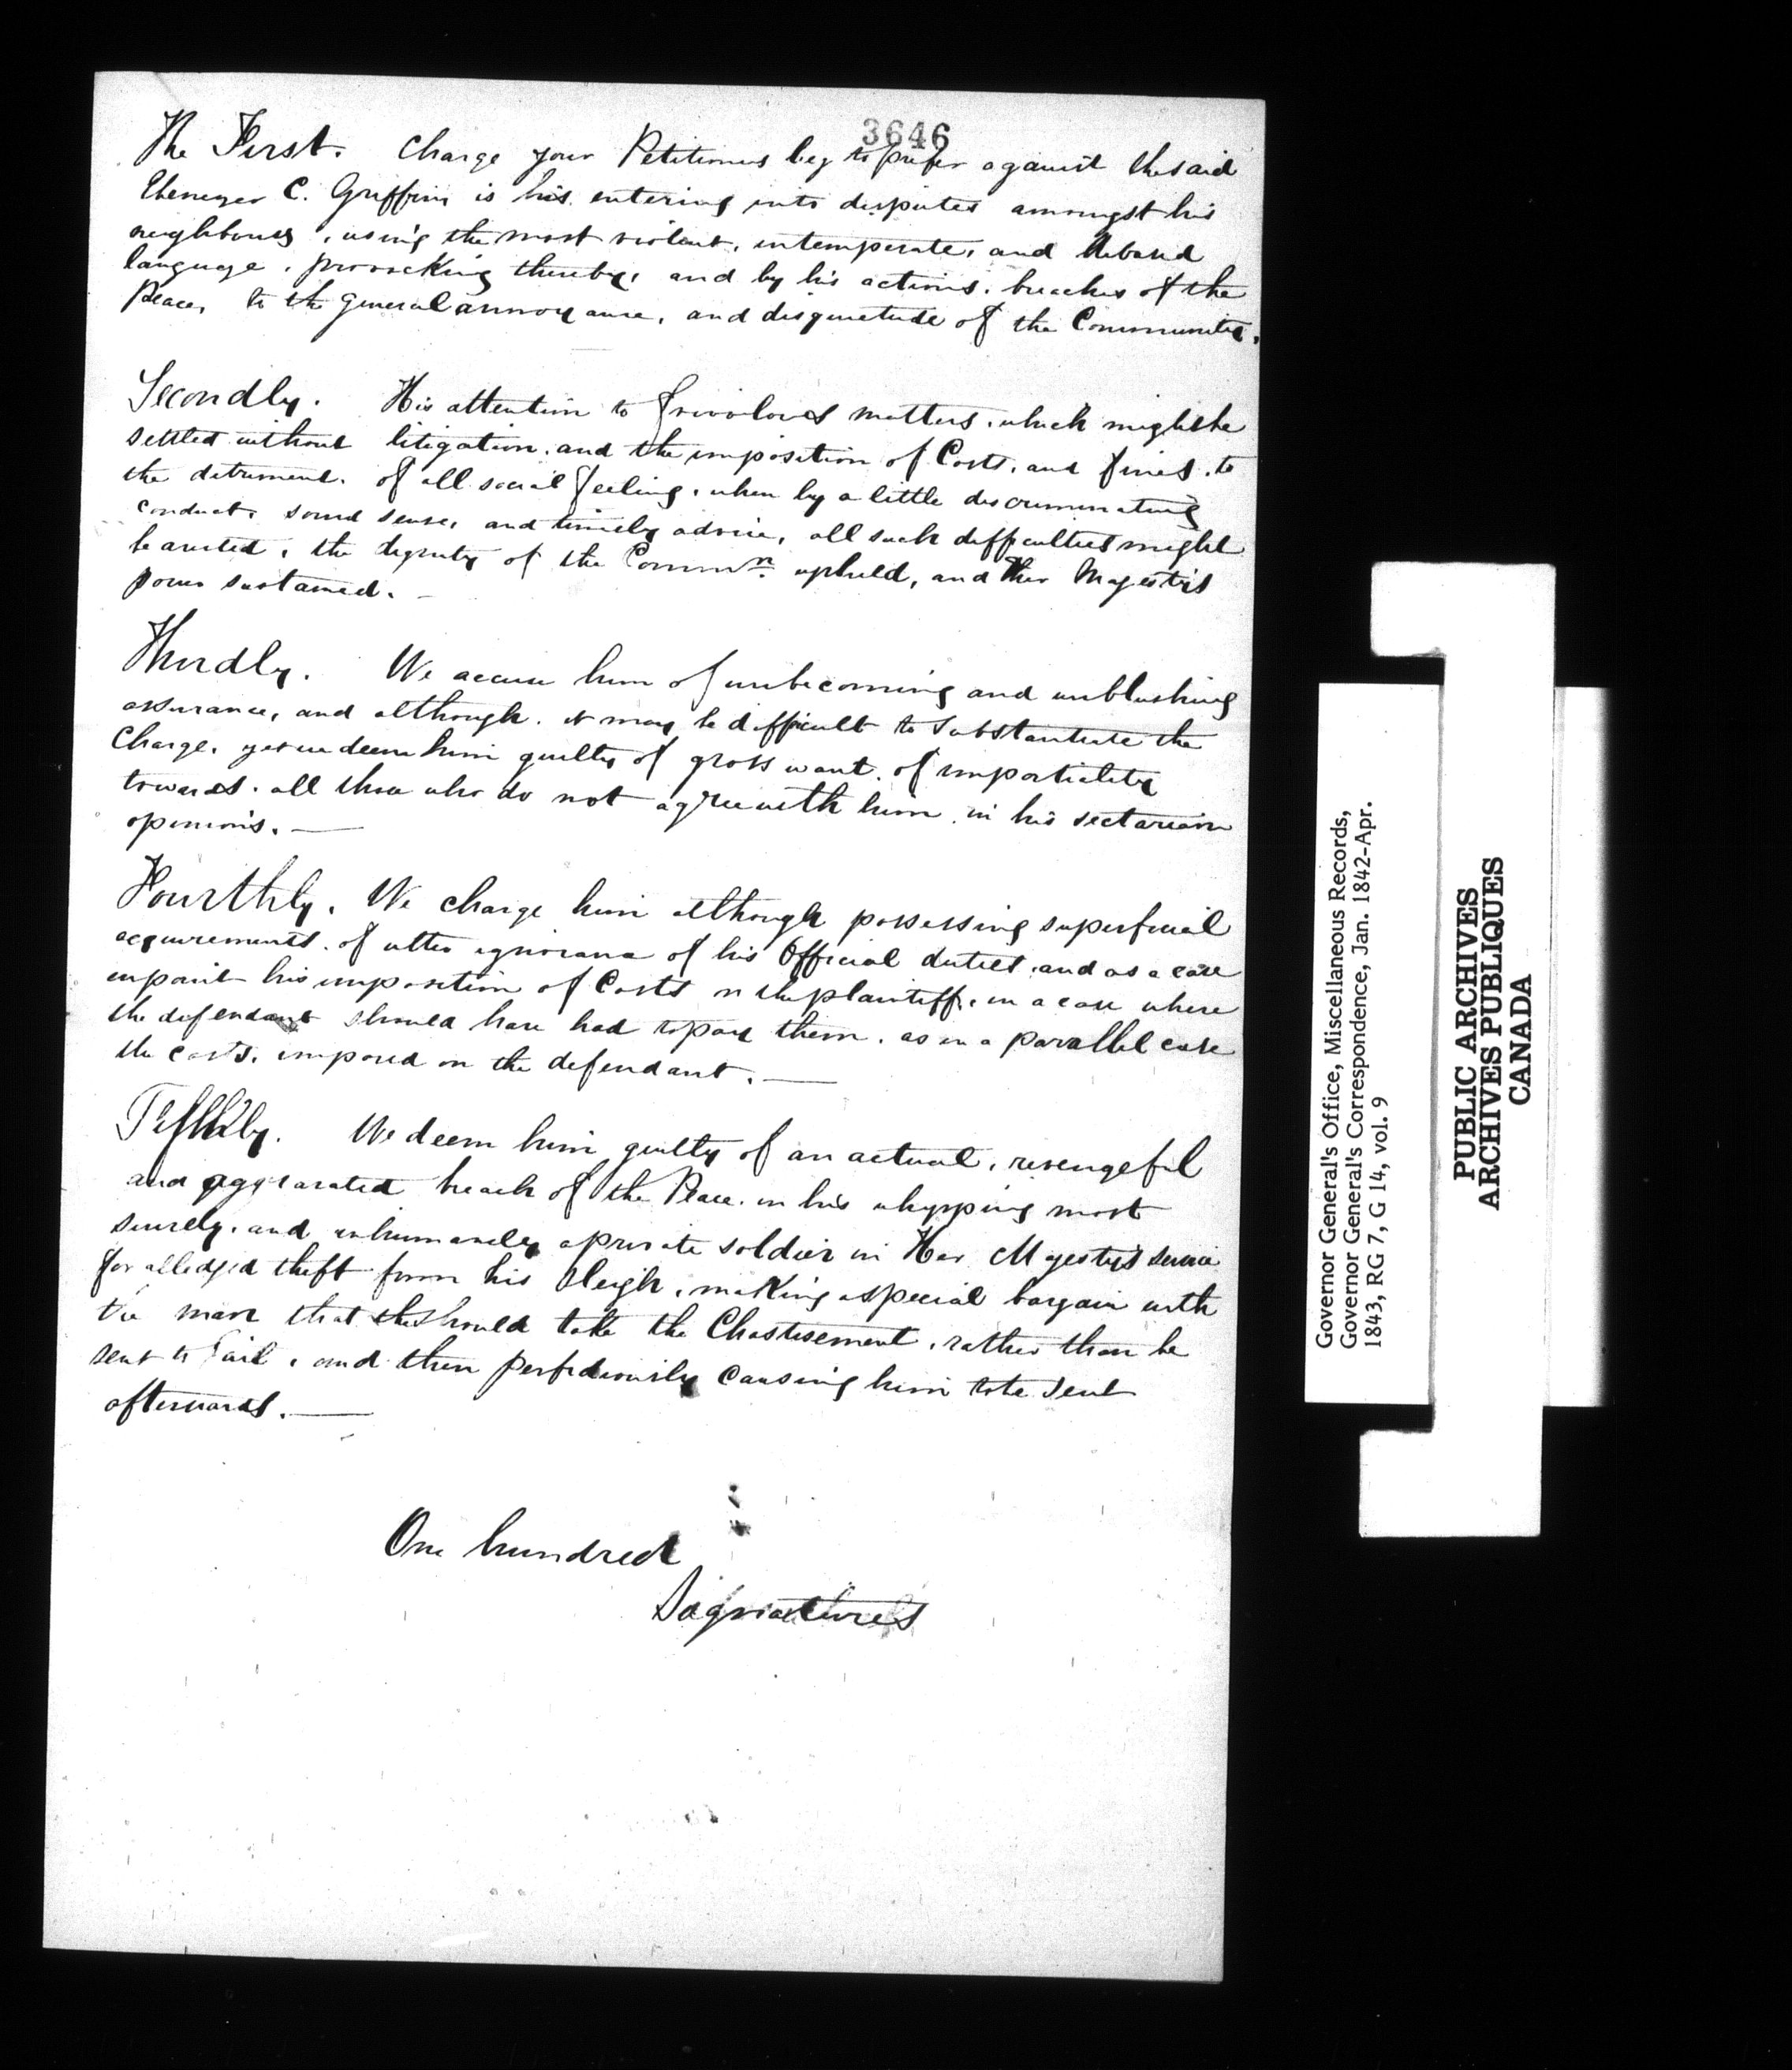 3646
The First. Charge your Petitioners beg to prefer against the said
Ebenezer C. Griffin is his entering into disputes amongst his
neighbours, using the most violent, intemperate, and debased
language, provocking thereby, and by his actions, breaches of the
Peace, to the general annoyance, and disquietude of the Community.
Secondly. His attention to frivolous matters, which might be
settled without litigation, and the imposition of Costs, and fines, to
the detriment, of all social feeling, when by a little discriminating
conduct, sound sense, and timely advice, all such difficulties might
be averted, the dignity of the Commn. upheld, and Her Majestis
power sustained.
Thirdly. We accuse him of unbecoming and unblushing
assurance, and although, it may be difficult to substantiate the
Charge, yet we deem him guilty of gross want, of impartiality
towards all those who do not agree with him in his sectarian
opinions.
Fourthly. We charge him although possessing superficial
acquirements, of utter ignorance of his Official duties, and as a case
in point his imposition of Costs on the plaintiff, in a case where
the defendant should have had to pay them, as in a parallel case
the costs, imposed on the defendant.
Fifthly. We deem him guilty of an actual, revengeful
and aggravated breach of the Peace, in his whypping most
severely, and inhumanely a private soldier in Her Majesty's service
for alledged theft from his Sleigh, making a special bargain with
the man that he should take the Chastisement, rather than be
sent to Jail, and then perfidiously causing him to be sent
afterwards.
One hundred
Signatures
Governor General's Office, Miscellaneous Records,
Governor General's Correspondence, Jan. 1842-Apr.
1843, RG 7, G 14, vol. 9
PUBLIC ARCHIVES
ARCHIVES PUBLIQUES
CANADA